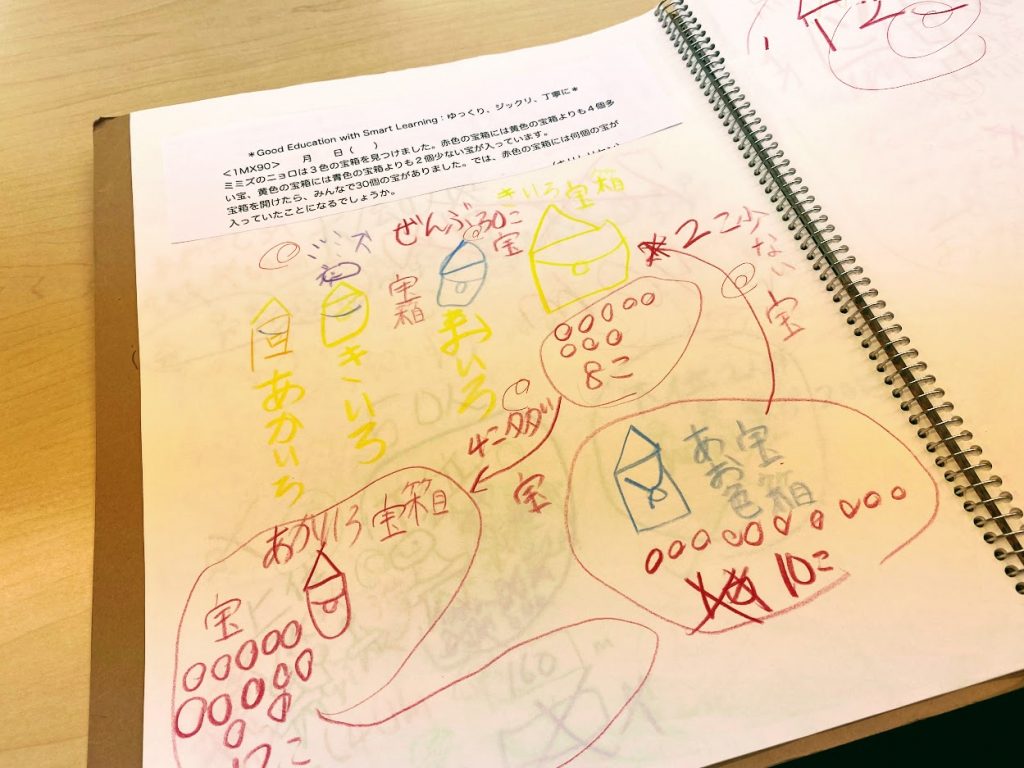 ＊Good Education with Smart Learning：ゆっくり、ジックリ、丁寧に＊
<1MX90>　　月　　日（　　）
ミミズのニョロは３色の宝箱を見つけました。赤色の宝箱には黄色の宝箱よりも４個多
い宝、黄色の宝箱には青色の宝箱よりも２個少ない宝が入っています。
宝箱を開けたら、みんなで30個の宝がありました。では、赤色の宝箱には何個の宝が
入っていたことになるでしょうか。
きいろ宝箱
ぜんぶ30こ
宝
ミミズ
宝箱
2こ少ない宝
あかいろ
きいろ
あおいろ
8こ
4こ多い
宝
あお色
宝箱
10こ
あかいろ宝箱
宝
12こ
160